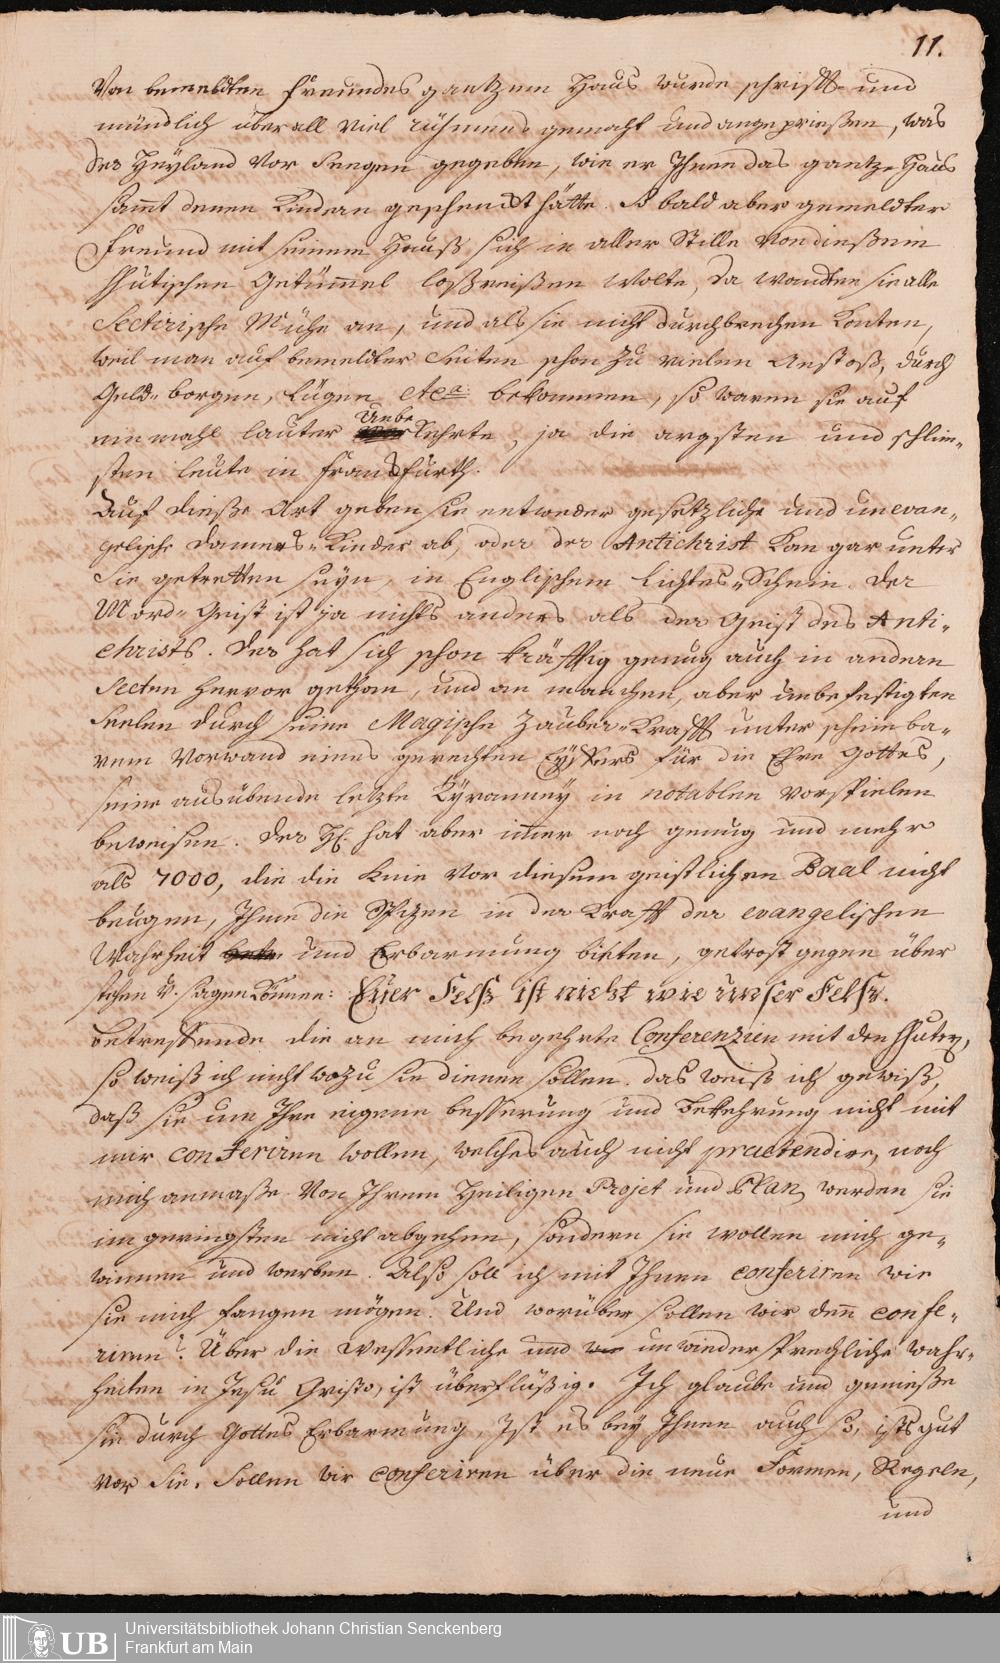 11.
Von bemeldten Freundes gantzem Haus wurde schrifft- und
mündlich überall viel rühmens gemacht und angepriesen, was
der Heyland vor Seegen gegeben, wie er Ihnen das gantze Haus
sam̅t denen Kindern geschenckt hätte. So bald aber gemeldter
Freund mit seinem Hauß sich in aller Stille von dießem
Getüm̅el loßreißen wolte, da wandten sie alle
Sectirische Mühe an, und als sie nicht durchbrechen konten,
weil man auf bemeldter Seiten schon zu vielen Anstoß, durch
Geld-borgen, Lügen etca: bekommen, so waren sie auf
einmahl lauter Unbekehrte, ja die ärgsten und schlim-
sten Leute in Franckfurth.
Auf dieße Art geben sie entweder gesetzliche und unevan-
gelische Kinder ab, oder der Antichrist kan gar unter
Sie getretten seyn, in Englischem Lichtes-Schein. Der
Mord-Geist ist ja nichts anders als der Geist des Anti-
christs. Der hat sich schon kräfftig genug auch in andern
Secten hervor gethan, und an manchen, aber unbefestigten
Seelen durch seine Magische Zauber-Krafft unter scheinba-
rem Vorwand eines gerechten Eyffers für die Ehre Gottes,
seine ausübende letzte Tyranney in notablen Vorspielen
beweisen. Der H. hat aber im̅er noch genug und mehr
als 7000, die die Knie vor diesem geistlichen Baal nicht
beugen, Ihme die Spizen in der Krafft der evangelischen
Wahrheit und Erbarmung bieten, getrost gegen über
stehen u. sagen können: Euer Felß ist nicht wie unser Felß.
Betreffende die an mich begehrte Conferenzien mit den
so weiß ich nicht wozu sie dienen sollen. das weiß ich gewiß,
daß sie um Ihre eigene Besserung und Bekehrung nicht mit
mir conferiren wollen, welches auch nicht praetendire, noch
mich anmaße. Von Ihrem Heiligen Projet und Plan werden sie
im geringsten nicht abgehen, sondern sie wollen mich ge-
winnen und werben. Also soll ich mit Ihnen conferiren wie
sie mich fangen mögen. Und worüber sollen wir den̅ confe-
riren? Über die wessentliche und unwiedersprechliche Wahr-
heiten in Jesu Christo, ist überflüßig. Ich glaube und genieße
sie durch Gottes Erbarmung, Ist es bey Ihnen auch so, ists gut
vor Sie. Sollen wir conferiren über die neue Formen, Regeln,
und
UB
Universitätsbibliothek Johann Christian Senckenberg
Frankfurt am Main